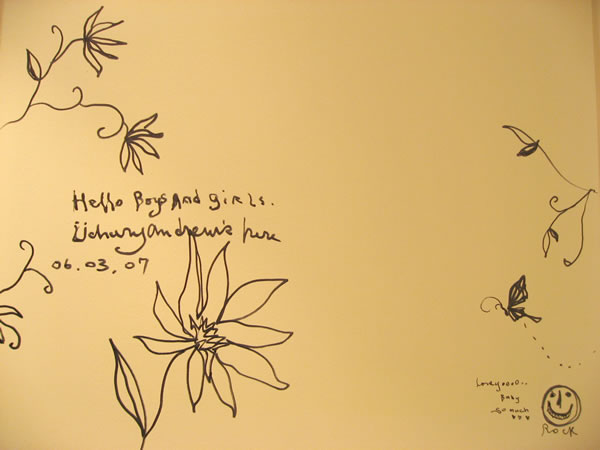 Hello Boys And girls.
Andrew's here
06.03.07
Loveyoooo..
Baby
So much
ROCK